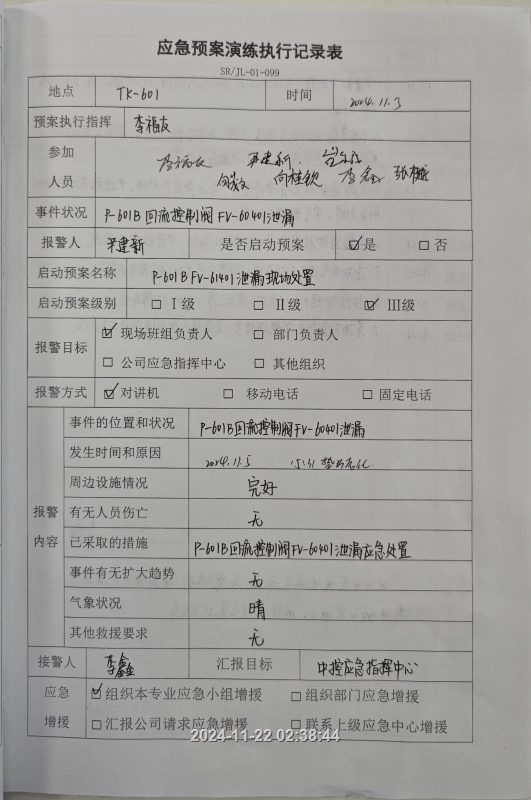 应急预案演练执行记录表
SR/JL-01-099
地点 TK-601 时间 2024.11.5
预案执行指挥 李福友
参加 李福友
人员 向桂钦 李鑫
事件状况 P-601B回流控制阀FV-60401泄漏
报警人 建新 是否启动预案 ☑是 □否
启动预案名称 P-601B FV-61401泄漏现场处置
启动预案级别 □Ⅰ级 □Ⅱ级 ☑Ⅲ级
报警目标 ☑现场班组负责人 □部门负责人
□公司应急指挥中心 □其他组织
报警方式 ☑对讲机 □移动电话 □固定电话
报警内容
事件的位置和状况 P-601B回流控制阀FV-60401泄漏
发生时间和原因 2024.11.5 15:31 垫片老化
周边设施情况 完好
有无人员伤亡 无
已采取的措施 P-601B回流控制阀FV-60401泄漏应急处置
事件有无扩大趋势 无
气象状况 晴
其他救援要求 无
接警人 李鑫 汇报目标 中控应急指挥中心
应急 ☑组织本专业应急小组增援 □组织部门应急增援
增援 □汇报公司请求应急增援 □联系上级应急中心增援
2024-11-22 02:38:44